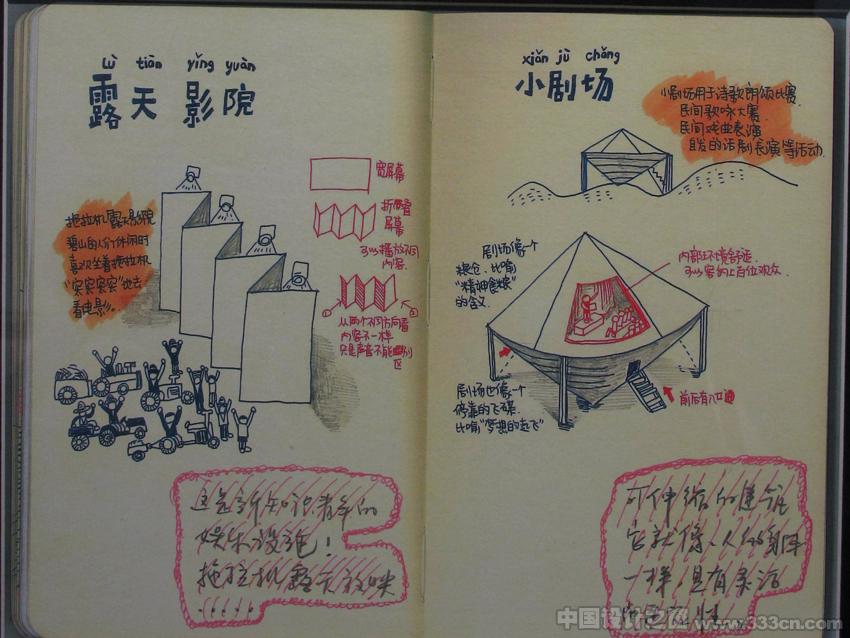 lù tiān yǐng yuàn
露天影院
拖拉机露天影院
碧山的人们休闲时
喜欢坐着拖拉机
"突突突突"地去
看电影。
宽屏幕
折叠
屏幕
可以播放不同
内容。
从两个不同方向看
内容不一样
只是声音不能区别
这是新知识青年的
娱乐设施！
拖拉机露天放映
......
xiǎn jù chǎng
小剧场
小剧场用于诗歌朗颂比赛
民间歌咏大赛
民间戏曲表演
自发的话剧表演等活动.
剧场像一个
粮仓，比喻
"精神食粮"
的含义
内部环境舒适
可以容纳上百位观众.
剧场也像一个
停靠的飞碟.
比喻"梦想的起飞"
前后有入口
可伸缩的建筑
它就像人的身体
一样，具有灵活
中国设计之窗
www.333cn.com